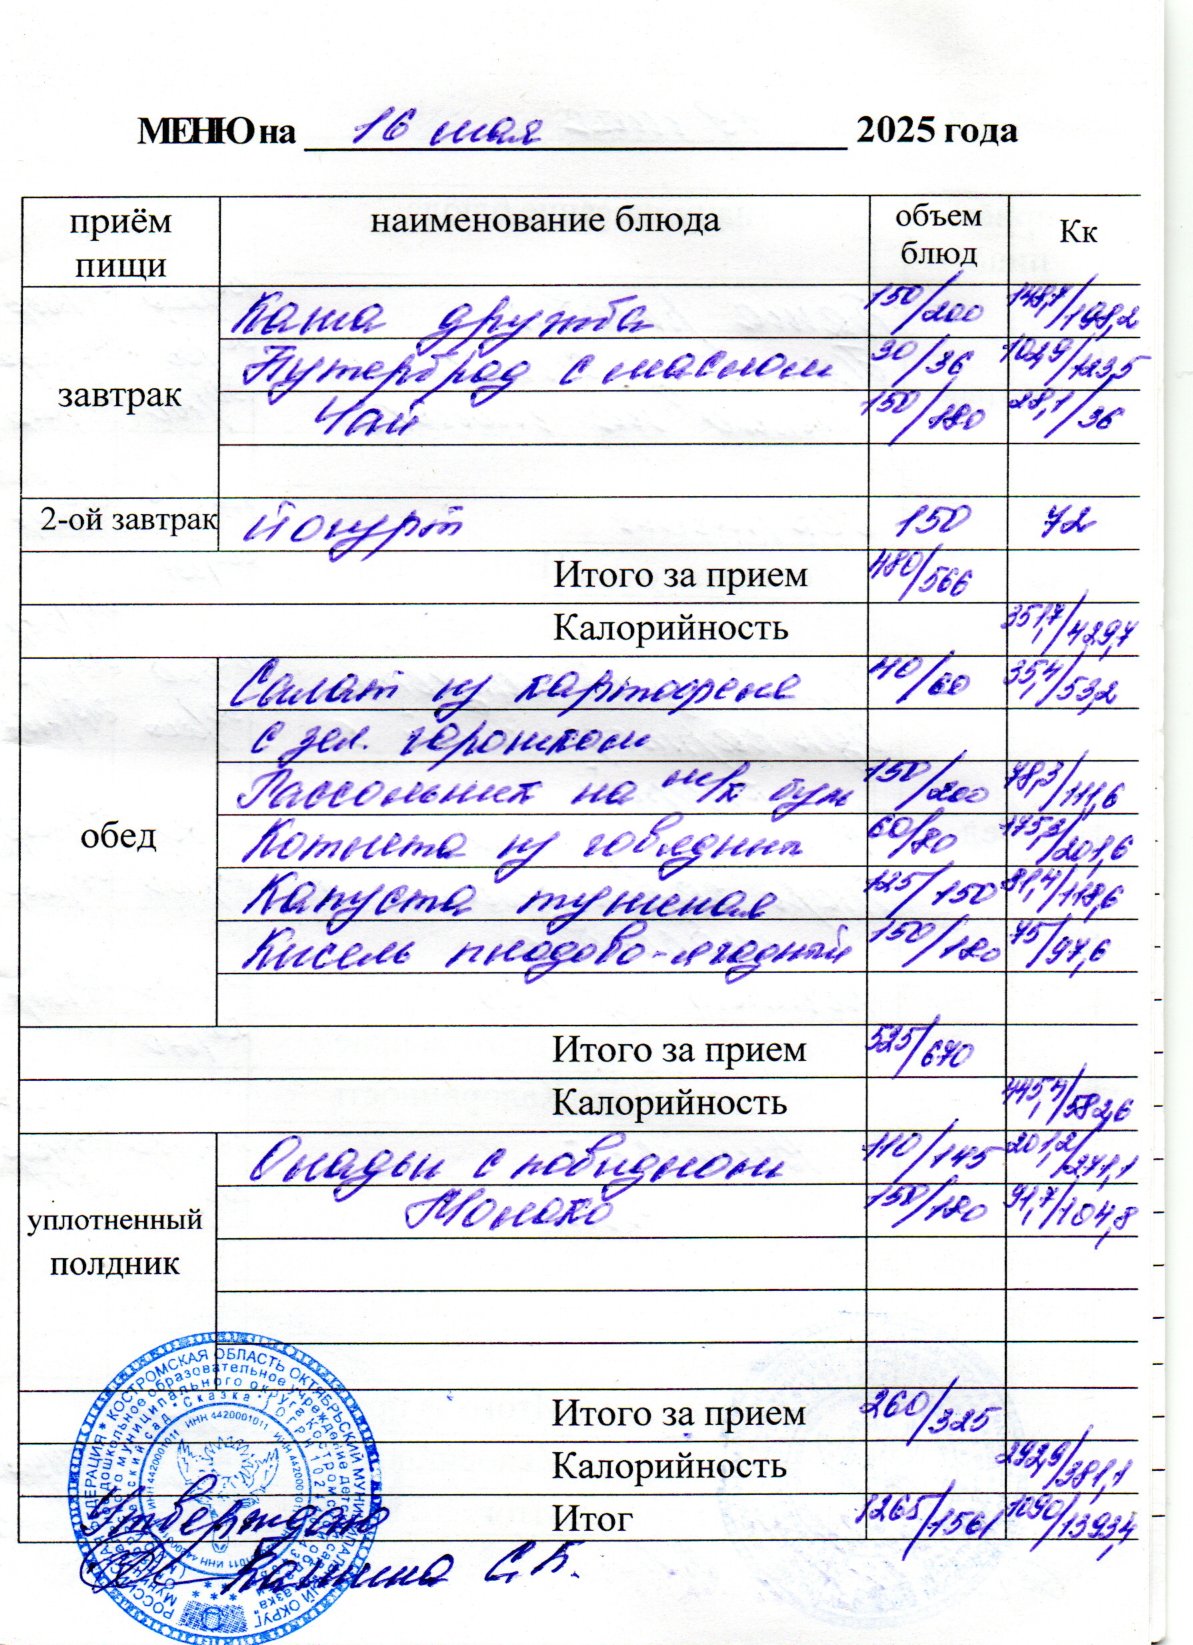 МЕНЮ на 16 мая 2025 года
приём пищи наименование блюда объем блюд Кк
завтрак
Каша дружба 150/200 148,7/198,2
Бутерброд с маслом 30/36 102,9/123,5
Чай 150/180 28,1/36
2-ой завтрак йогурт 150 72
Итого за прием 480/566
Калорийность 351,7/429,7
обед
Салат из картофеля 40/60 35,4/53,2
с зел. горошком
Рассольник на м/к бул 150/200 78,3/111,6
Котлета из говядины 60/80 175,3/201,6
Капуста тушеная 125/150 81,4/118,6
Кисель плодово-ягодный 150/180 75/97,6
Итого за прием 525/670
Калорийность 445,4/582,6
уплотненный полдник
Оладьи с повидлом 110/145 201,2/271,1
Молоко 150/180 91,7/104,8
Итого за прием 260/325
Калорийность 292,9/381,1
Итог 1265/1561 1090/1393,4
КОСТРОМСКАЯ ОБЛАСТЬ ОКТЯБРЬСКИЙ
ИНН 4420001011
Утверждаю
С.Б.